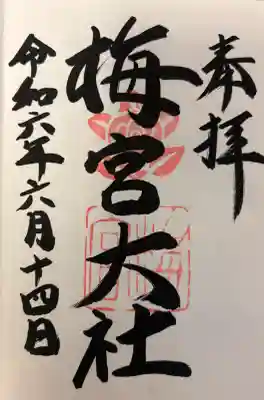 奉拝
梅宮大社
令和六年六月十四日